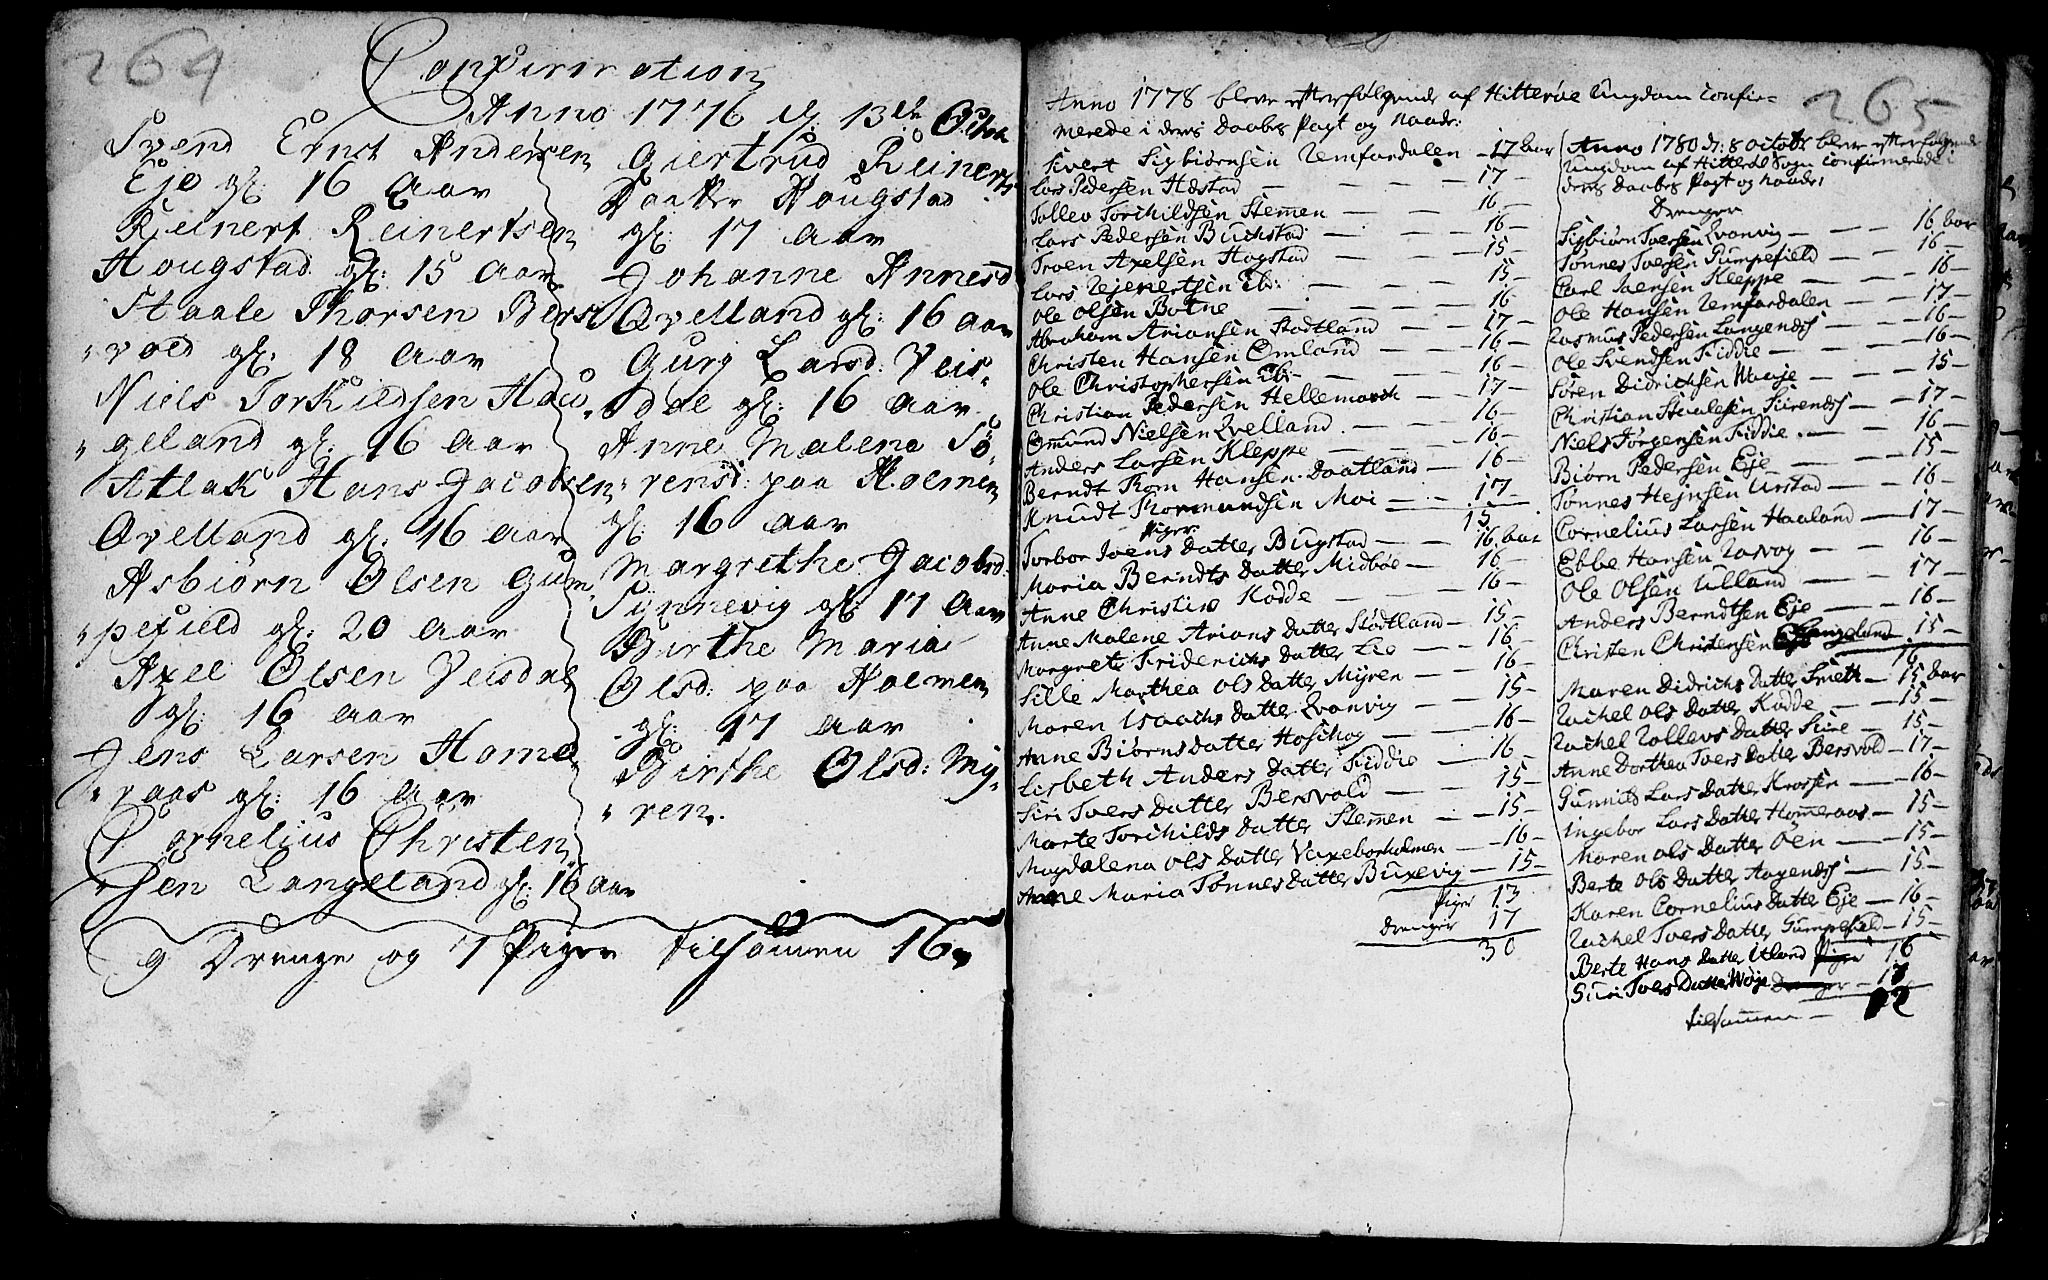 264
Confirmation
Anno 1776 d. 13de Octob
Svend Ernst Andersen
Eje gl: 16 Aar
Reinert Reinertsen
Hougstad gl: 15 Aar
Staale Thorsen Bers
" vold gl: 18 Aar
Niels Torkieldsen Hau
" geland gl: 16 Aar
Atlak Hans Jacobsen
Qvelland gl: 16 Aar
Asbiörn Olsen Gum
" pefield gl: 20 Aar
Axel Olsen Veisdal
gl: 16 Aar
Jens Larsen Home
" raas gl: 16 Aar
Cornelius Christen
" sen Langeland gl: 16 Aar
Giertrud Reinerts
Daatter Hougstad
gl: 17 Aar
Johanne Annesd
Qvelland gl: 16 aar
Gurg Larsd: Veis
" dal gl: 16 Aar
Anne Malena Sö
" rensd: paa Holmen
gl: 16 Aar
Margrethe Jacobsd:
Synnevig gl: 17 Aar
Birthe Maria
Olsd: paa Holmen
gl: 17 Aar
Birthe Olsd: My
" ren.
9 Drenge og 7 Piger tilsamen 16
265
Anno 1778 bleve efterfølgende af Hitterøe Ungdom confir=
merede i deres Daabs Pagt og Naade:
Sivert Sigbiørnsen Remfardalen - 17 Aar
Lars Pedersen Hæstad - 17 -
Tollev Torchildsen Stemmen - 16 -
Lars Pedersen Buchstad - 16 -
Troen Axelsen Hogstad - 15 -
Lars Rejenertsen ib: - 15 -
Ole Olsen Botne - 16
Abraham Ariansen Stodtland - 17 -
Christen Hansen Omland - 16 -
Ole Christophersen ib: - 16
Christian Pedersen Hellemarck - 17 -
Omund Nielsen Qvelland - 16 -
Anders Larsen Kleppe - 16 -
Berndt Thom Hansen Daatland - 16 -
Knudt Thormundsen Moi - 17 -
Piger 15
Torbor Joens Datter Bugstad - 16 Aar
Maria Berndts Datter Midbøe - 16 -
Anne Christina Rodde - 16 -
Anne Malene Arians Datter Stødtland - 15 -
Margrete Friderichs Datter Lie - 16 -
Sille Marthea Ols Datter Myren - 16 -
Maren Isaachs Datter Qvanvig - 15 -
Anne Biørns Datter Hoskog - 16 -
Lisbeth Anders Datter Fiddie - 16
Siri Tvers Datter Bersvold - 15 -
Marte Torchilds Datter Stemmen - 15 -
Magdalena Ols Datter Vaxeborholmen - 16 -
Anne Maria Tønnes Datter Buxevig - 15 -
Piger 13
Drenger 17
30
Anno 1780 d: 8 Octobr bleve efterfølgende
Ungdom af Hitterøe Sogn confirmerede i
deres Daabs Pagt og Naade:
Drenger
Sigbiørn Tversen Qvanvig - 16 Aar
Tønnes Tversen Gumpefield - 16 -
Carl Svensen Kleppe - 16 -
Ole Hansen Remfardalen - 17 -
Rasmus Pedersen Langendsj - 16 -
Ole Svendsen Fiddie - 16 -
Søren Didrichsen Waaje - 15
Christian Staalesen Siirendsj - 17 -
Niels Jørgensen Fiddie - 16 -
Biørn Pedersen Eje - 15 -
Tønnes Hejnsen Urstad - 16 -
Cornelius Larsen Haaland - 17 -
Ebbe Hansen Rasvog - 16 -
Ole Olsen Ulland - 17 -
Anders Berndtsen Eje - 16 -
Christen Christensen Langeland - 15 -
16
Maren Didrichs Datter Smeth - 15 Aar
Rachel Ols Datter Rodde - 15 -
Rachel Tollevs Datter Siire - 15 -
Anne Dorthea Tvers Datter Bersvold - 17 -
Gunnild Lars Datter Krossen - 16 -
Ingebor Lars Datter Homeraas - 15 -
Maren Ols Datter Øen - 15 -
Berte Ols Datter Aagendsj - 15 -
Karen Cornelius Datter Eje - 16 -
Rachel Tvers Datter Gumpefield - 15 -
Berte Hans Datter Ulland Piger 16
Siiri Tvers Datter Woje Drenger - 17
tilsammen -